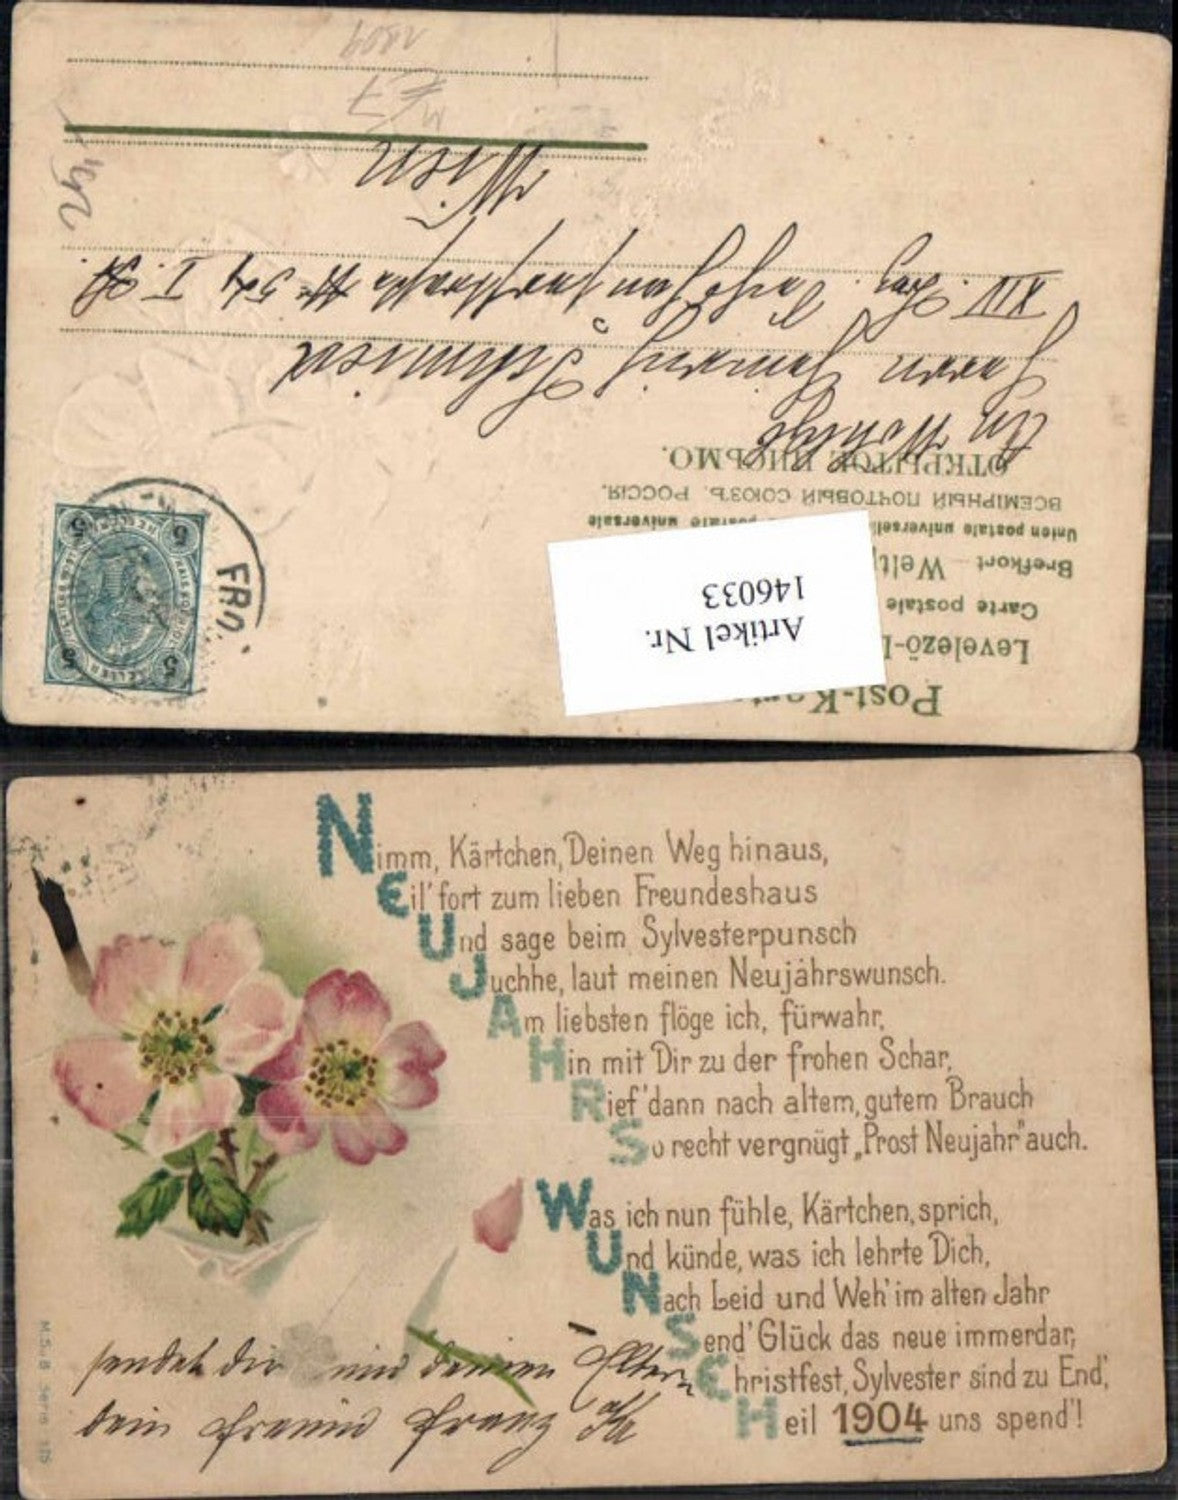 Post-Karte
Levelező-L
Carte postale
Brefkort Welt
Union postale universelle postale universale
ВСЕМІРНЫЙ ПОЧТОВЫЙ СОЮЗЪ. РОССІЯ.
ОТКРЫТОЕ ПИСЬМО.
Artikel Nr.
146033
FRO
5 5
5 5
An Wohlgb
Herrn Heinrich
XIV. I
Wien
Nimm, Kärtchen, Deinen Weg hinaus,
Eil' fort zum lieben Freundeshaus
Und sage beim Sylvesterpunsch
Juchhe, laut meinen Neujahrswunsch.
Am liebsten flöge ich, fürwahr,
Hin mit Dir zu der frohen Schar,
Rief' dann nach altem, gutem Brauch
So recht vergnügt „Prost Neujahr" auch.
Was ich nun fühle, Kärtchen, sprich,
Und künde, was ich lehrte Dich,
Nach Leid und Weh' im alten Jahr
Send' Glück das neue immerdar,
Christfest, Sylvester sind zu End',
Heil 1904 uns spend'!
sendet dir und deinen Eltern
dein Freund Franz
M.S.i.B. Serie